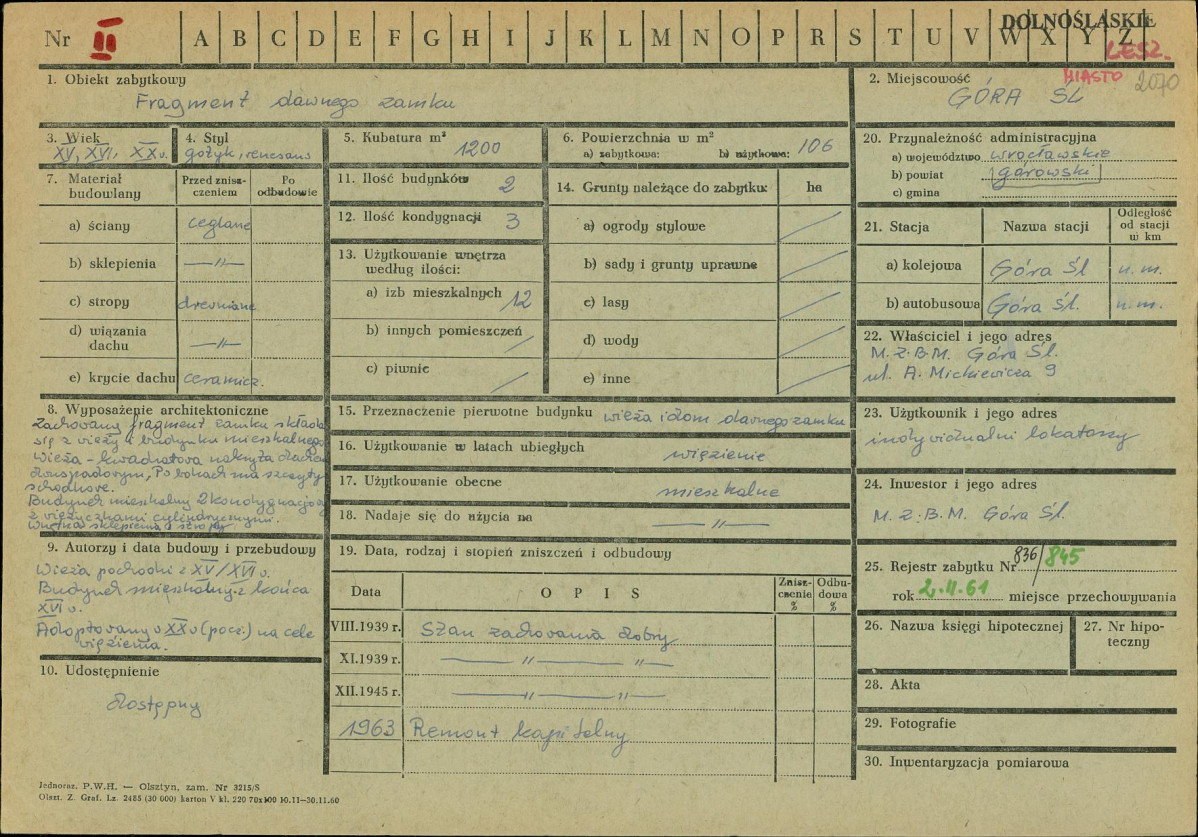 Nr II A B C D E F G H I J K L M N O P R S T U V W X Y Z
DOLNOŚLĄSKIE
LESZ.
MIASTO 2070
1. Obiekt zabytkowy
Fragment dawnego zamku
2. Miejscowość
GÓRA ŚL
3. Wiek
XV, XVI, XX w.
4. Styl
gotyk, renesans
5. Kubatura m³
1200
6. Powierzchnia w m²
a) zabytkowa: b) użytkowa: 106
7. Materiał budowlany
Przed zniszczeniem
Po odbudowie
a) ściany ceglane
b) sklepienia —„—
c) stropy drewniane
d) wiązania dachu —„—
e) krycie dachu ceramicz.
8. Wyposażenie architektoniczne
Zachowany fragment zamku składa
się z wieży i budynku mieszkalnego
Wieża – kwadratowa nakryta dachem
dwuspadowym, Po bokach ma szczyty
schodkowe.
Budynek mieszkalny 2 kondygnacjowy
z wieżyczkami cylindrycznymi.
Wnętrza sklepienia i stropy
9. Autorzy i data budowy i przebudowy
Wieża pochodzi z XV/XVI w.
Budynek mieszkalny z końca
XVI w.
Adoptowany w XX w (pocz.) na cele
więzienia.
10. Udostępnienie
dostępny
11. Ilość budynków 2
12. Ilość kondygnacji 3
13. Użytkowanie wnętrza
według ilości:
a) izb mieszkalnych 12
b) innych pomieszczeń /
c) piwnic /
14. Grunty należące do zabytku: ha
a) ogrody stylowe /
b) sady i grunty uprawne /
c) lasy /
d) wody /
e) inne /
15. Przeznaczenie pierwotne budynku wieża i dom dawnego zamku
16. Użytkowanie w latach ubiegłych
więzienie
17. Użytkowanie obecne
mieszkalne
18. Nadaje się do użycia na —„—
19. Data, rodzaj i stopień zniszczeń i odbudowy
Data O P I S Zniszczenia % Odbudowa %
VIII.1939 r. Stan zachowania dobry
XI.1939 r. —„— „—
XII.1945 r. —„— „—
1963 Remont kapitalny
20. Przynależność administracyjna
a) województwo wrocławskie
b) powiat górowski
c) gmina
21. Stacja Nazwa stacji Odległość od stacji w km
a) kolejowa Góra Śl n. m.
b) autobusowa Góra Śl. n. m.
22. Właściciel i jego adres
M. Z. B. M. Góra Śl.
ul. A. Mickiewicza 9
23. Użytkownik i jego adres
indywidualni lokatorzy
24. Inwestor i jego adres
M. Z. B. M. Góra Śl.
25. Rejestr zabytku Nr 836/845
rok 2.11.61 miejsce przechowywania
26. Nazwa księgi hipotecznej
27. Nr hipoteczny
28. Akta
29. Fotografie
30. Inwentaryzacja pomiarowa
Jednoraz. P.W.H. — Olsztyn, zam. Nr 3215/S
Olszt. Z. Graf. Lz. 2485 (30 000) karton V kl. 220 70x100 10.11—30.11.60